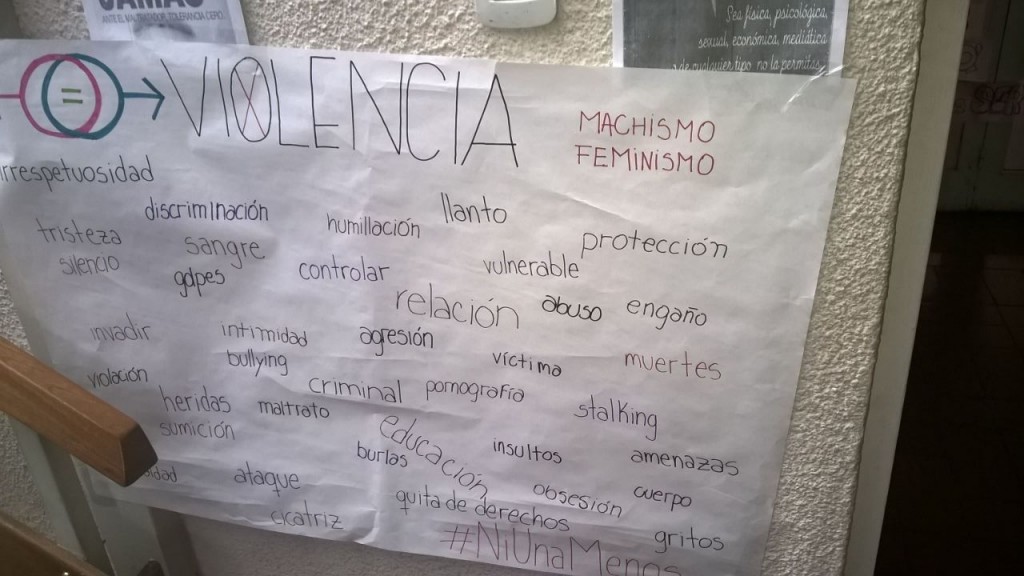 JAMÁS
ANTE EL MALTRATADOR, TOLERANCIA CERO.
Sea física, psicológica,
sexual, económica, mediática
y de cualquier tipo no la permitas.
=
VIOLENCIA
MACHISMO
FEMINISMO
irrespetuosidad
discriminación humillación llanto
tristeza sangre protección
silencio golpes controlar vulnerable
relación abuso engaño
invadir intimidad agresión
bullying víctima muertes
violación criminal pornografía
heridas maltrato stalking
sumición educación insultos amenazas
burlas
idad ataque obsesión cuerpo
quita de derechos
cicatriz gritos
#NiUnaMenos